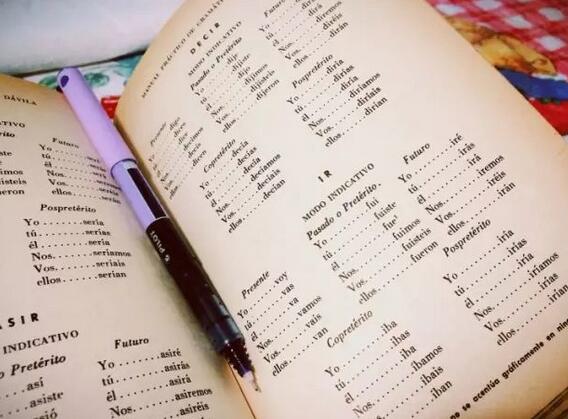 DÁVILA
Futuro
Yo
tú
él
Nos.
Vos.
ellos
Pospretérito
Yo........sería
tú........serías
él........sería
Nos......seríamos
Vos......seríais
ellos.....serían
ASIR
INDICATIVO
o Pretérito
así
asiste
asió
Futuro
Yo........asiré
tú........asirás
él........asirá
Nos......asiremos
Vos......asiréis
PILOT
MANUAL PRÁCTICO DE GRAMÁT
DECIR
MODO INDICATIVO
Presente
Yo........digo
tú
él........dice
Nos......decimos
Vos......decís
ellos
Pasado o Pretérito
Yo........dije
tú........dijiste
él........dijo
Nos......dijimos
Vos......dijisteis
ellos.....dijeron
Futuro
diré
tú........dirás
él........dirá
Nos......diremos
Vos......diréis
ellos.....dirán
Copretérito
Yo........decía
tú........decías
él........decía
Nos......decíamos
Vos......decíais
ellos.....decían
Pospretérito
Yo........diría
tú........dirías
él........diría
Nos......diríamos
Vos......diríais
ellos.....dirían
IR
MODO INDICATIVO
Presente
Yo........voy
tú........vas
él........va
Nos......vamos
Vos......vais
ellos.....van
Pasado o Pretérito
Yo........fui
tú........fuiste
él........fue
Nos......fuimos
Vos......fuisteis
ellos.....fueron
Futuro
Yo........iré
tú........irás
él........irá
Nos......iremos
Vos......iréis
ellos.....irán
Copretérito
Yo........iba
tú........ibas
él........iba
Nos......íbamos
Vos......ibais
ellos.....iban
Pospretérito
Yo........iría
tú........irías
él........iría
Nos......iríamos
Vos......iríais
ellos.....irían
se acentúa gráficamente en nin